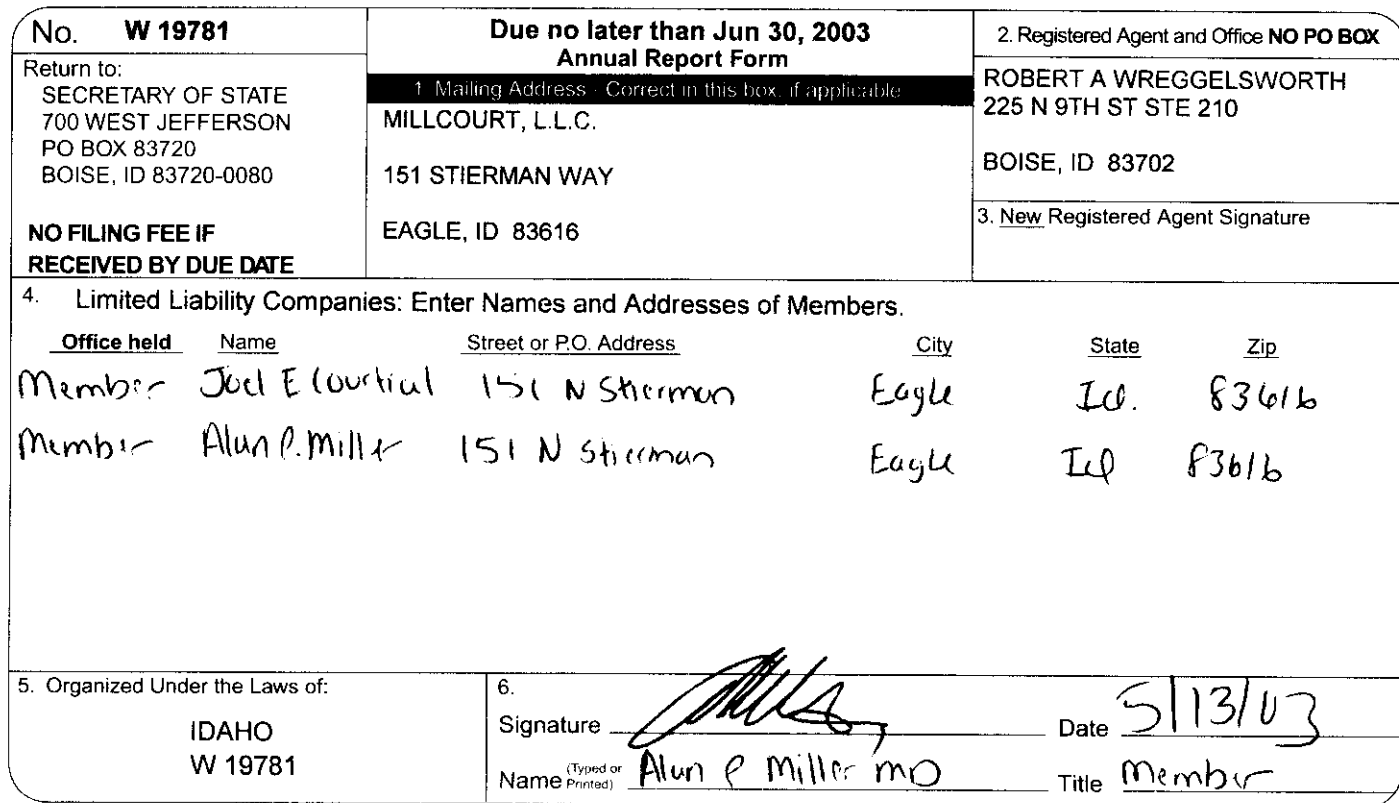 No. W 19781
Return to:
SECRETARY OF STATE
700 WEST JEFFERSON
PO BOX 83720
BOISE, ID 83720-0080
NO FILING FEE IF
RECEIVED BY DUE DATE
Due no later than Jun 30, 2003
Annual Report Form
1 Mailing Address - Correct in this box, if applicable
MILLCOURT, L.L.C.
151 STIERMAN WAY
EAGLE, ID 83616
2. Registered Agent and Office NO PO BOX
ROBERT A WREGGELSWORTH
225 N 9TH ST STE 210
BOISE, ID 83702
3. New Registered Agent Signature
4. Limited Liability Companies: Enter Names and Addresses of Members.
Office held Name Street or P.O. Address City State Zip
Member Joel E Courtial 151 N Stierman Eagle Id. 83616
Member Alan P. Miller 151 N Stierman Eagle Id 83616
5. Organized Under the Laws of:
IDAHO
W 19781
6.
Signature Date 5/13/03
Name (Typed or Printed) Alan P Miller MD Title Member